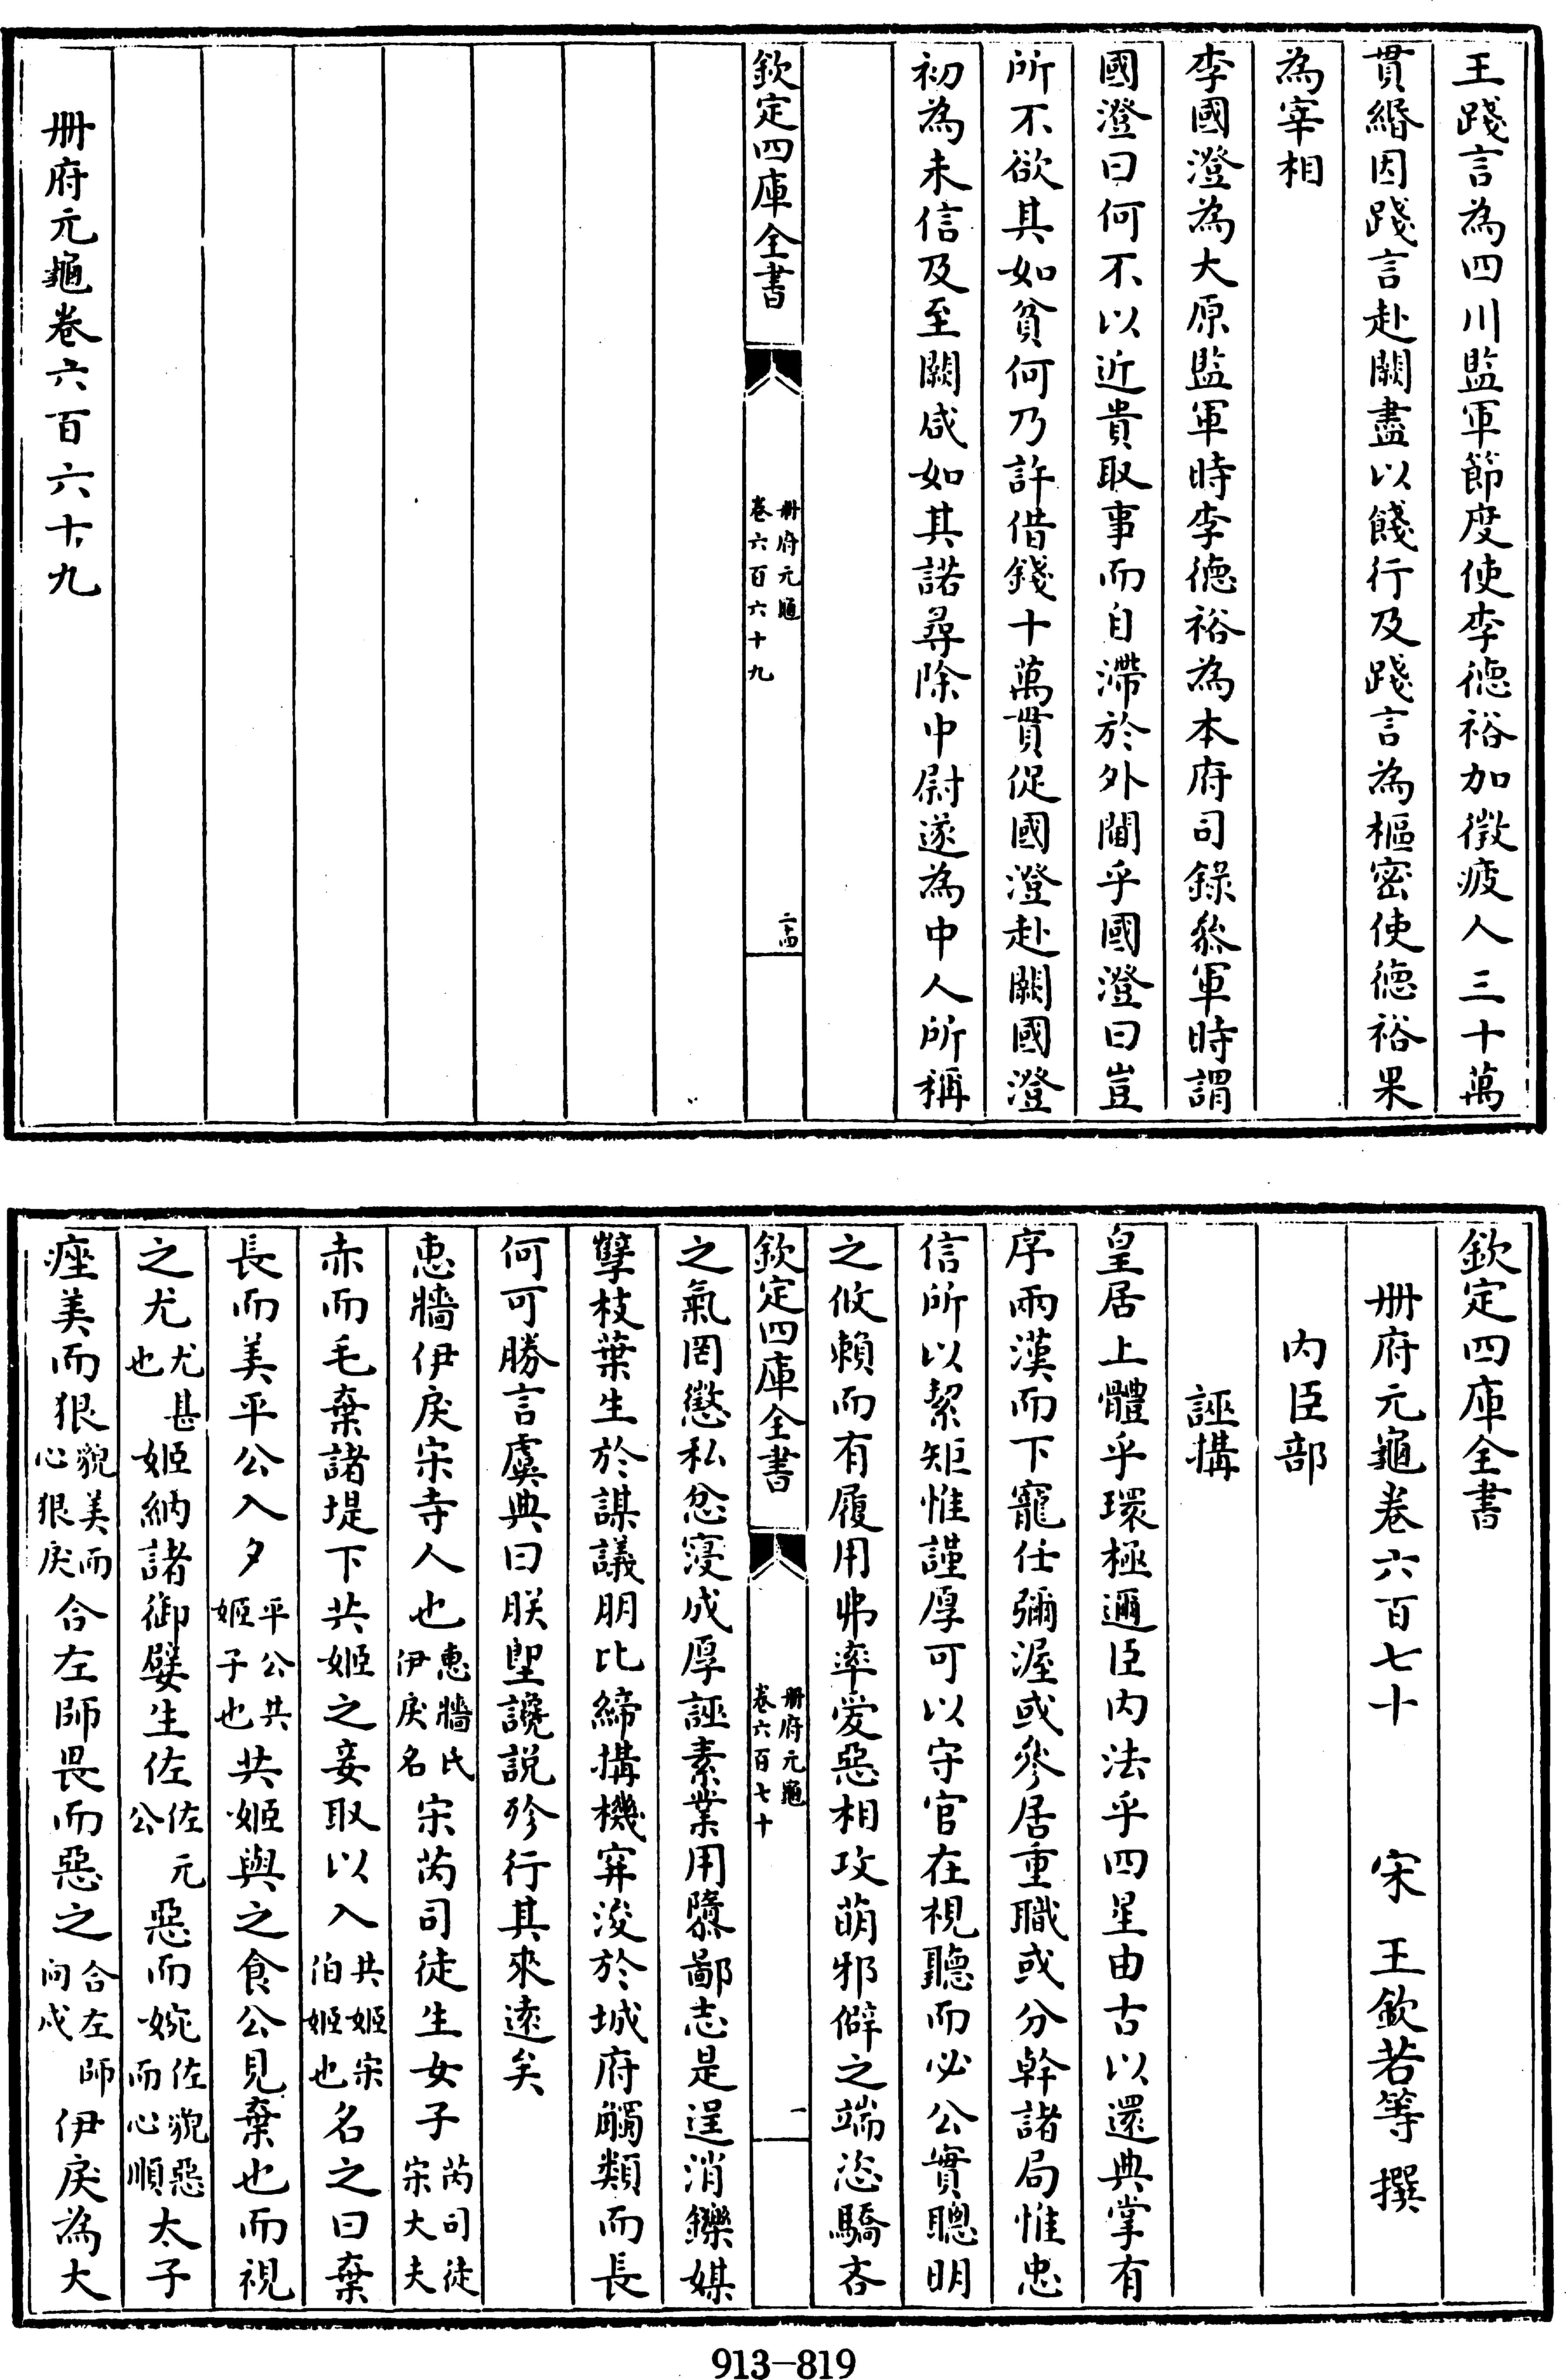 王踐言為四川監軍節度使李德裕加徵疲人三十萬
貫緡因踐言赴闕盡以餞行及踐言為樞密使德裕果
為宰相
李國澄為大原監軍時李德裕為本府司錄叅軍時謂
國澄曰何不以近貴取事而自滯於外閫乎國澄曰豈
所不欲其如貧何乃許借錢十萬貫促國澄赴闕國澄
初為未信及至闕咸如其諾尋除中尉遂為中人所稱
欽定四庫全書
冊府元龜
卷六百六十九
二十四
冊府元龜卷六百六十九
欽定四庫全書
冊府元龜卷六百七十 宋 王欽若等 撰
内臣部
誣搆
皇居上體乎環極邇臣内法乎四星由古以還典掌有
序兩漢而下寵任彌渥或參居重職或分幹諸局惟忠
信所以絜矩惟謹厚可以守官在視聽而必公實聰明
之攸賴而有履用弗率愛惡相攻萌邪僻之端恣驕吝
欽定四庫全書
冊府元龜
卷六百七十
一
之氣罔懲私忿寖成厚誣素業用隳鄙志是逞消鑠媒
孽枝葉生於謀議朋比締搆機穽浚於城府觸類而長
何可勝言虞典曰朕堲讒説殄行其來遠矣
惠牆伊戾宋寺人也惠牆氏伊戾名宋芮司徒生女子芮司徒宋大夫
赤而毛棄諸堤下共姬之妾取以入共姬宋伯姬也名之曰棄
長而美平公入夕平公共姬子也共姬與之食公見棄也而視
之尤尤甚也姬納諸御嬖生佐佐元公惡而婉佐貌惡而心順太子
痤美而狠貌美而心狠戾合左師畏而惡之合左師向戌伊戾為大
913-819